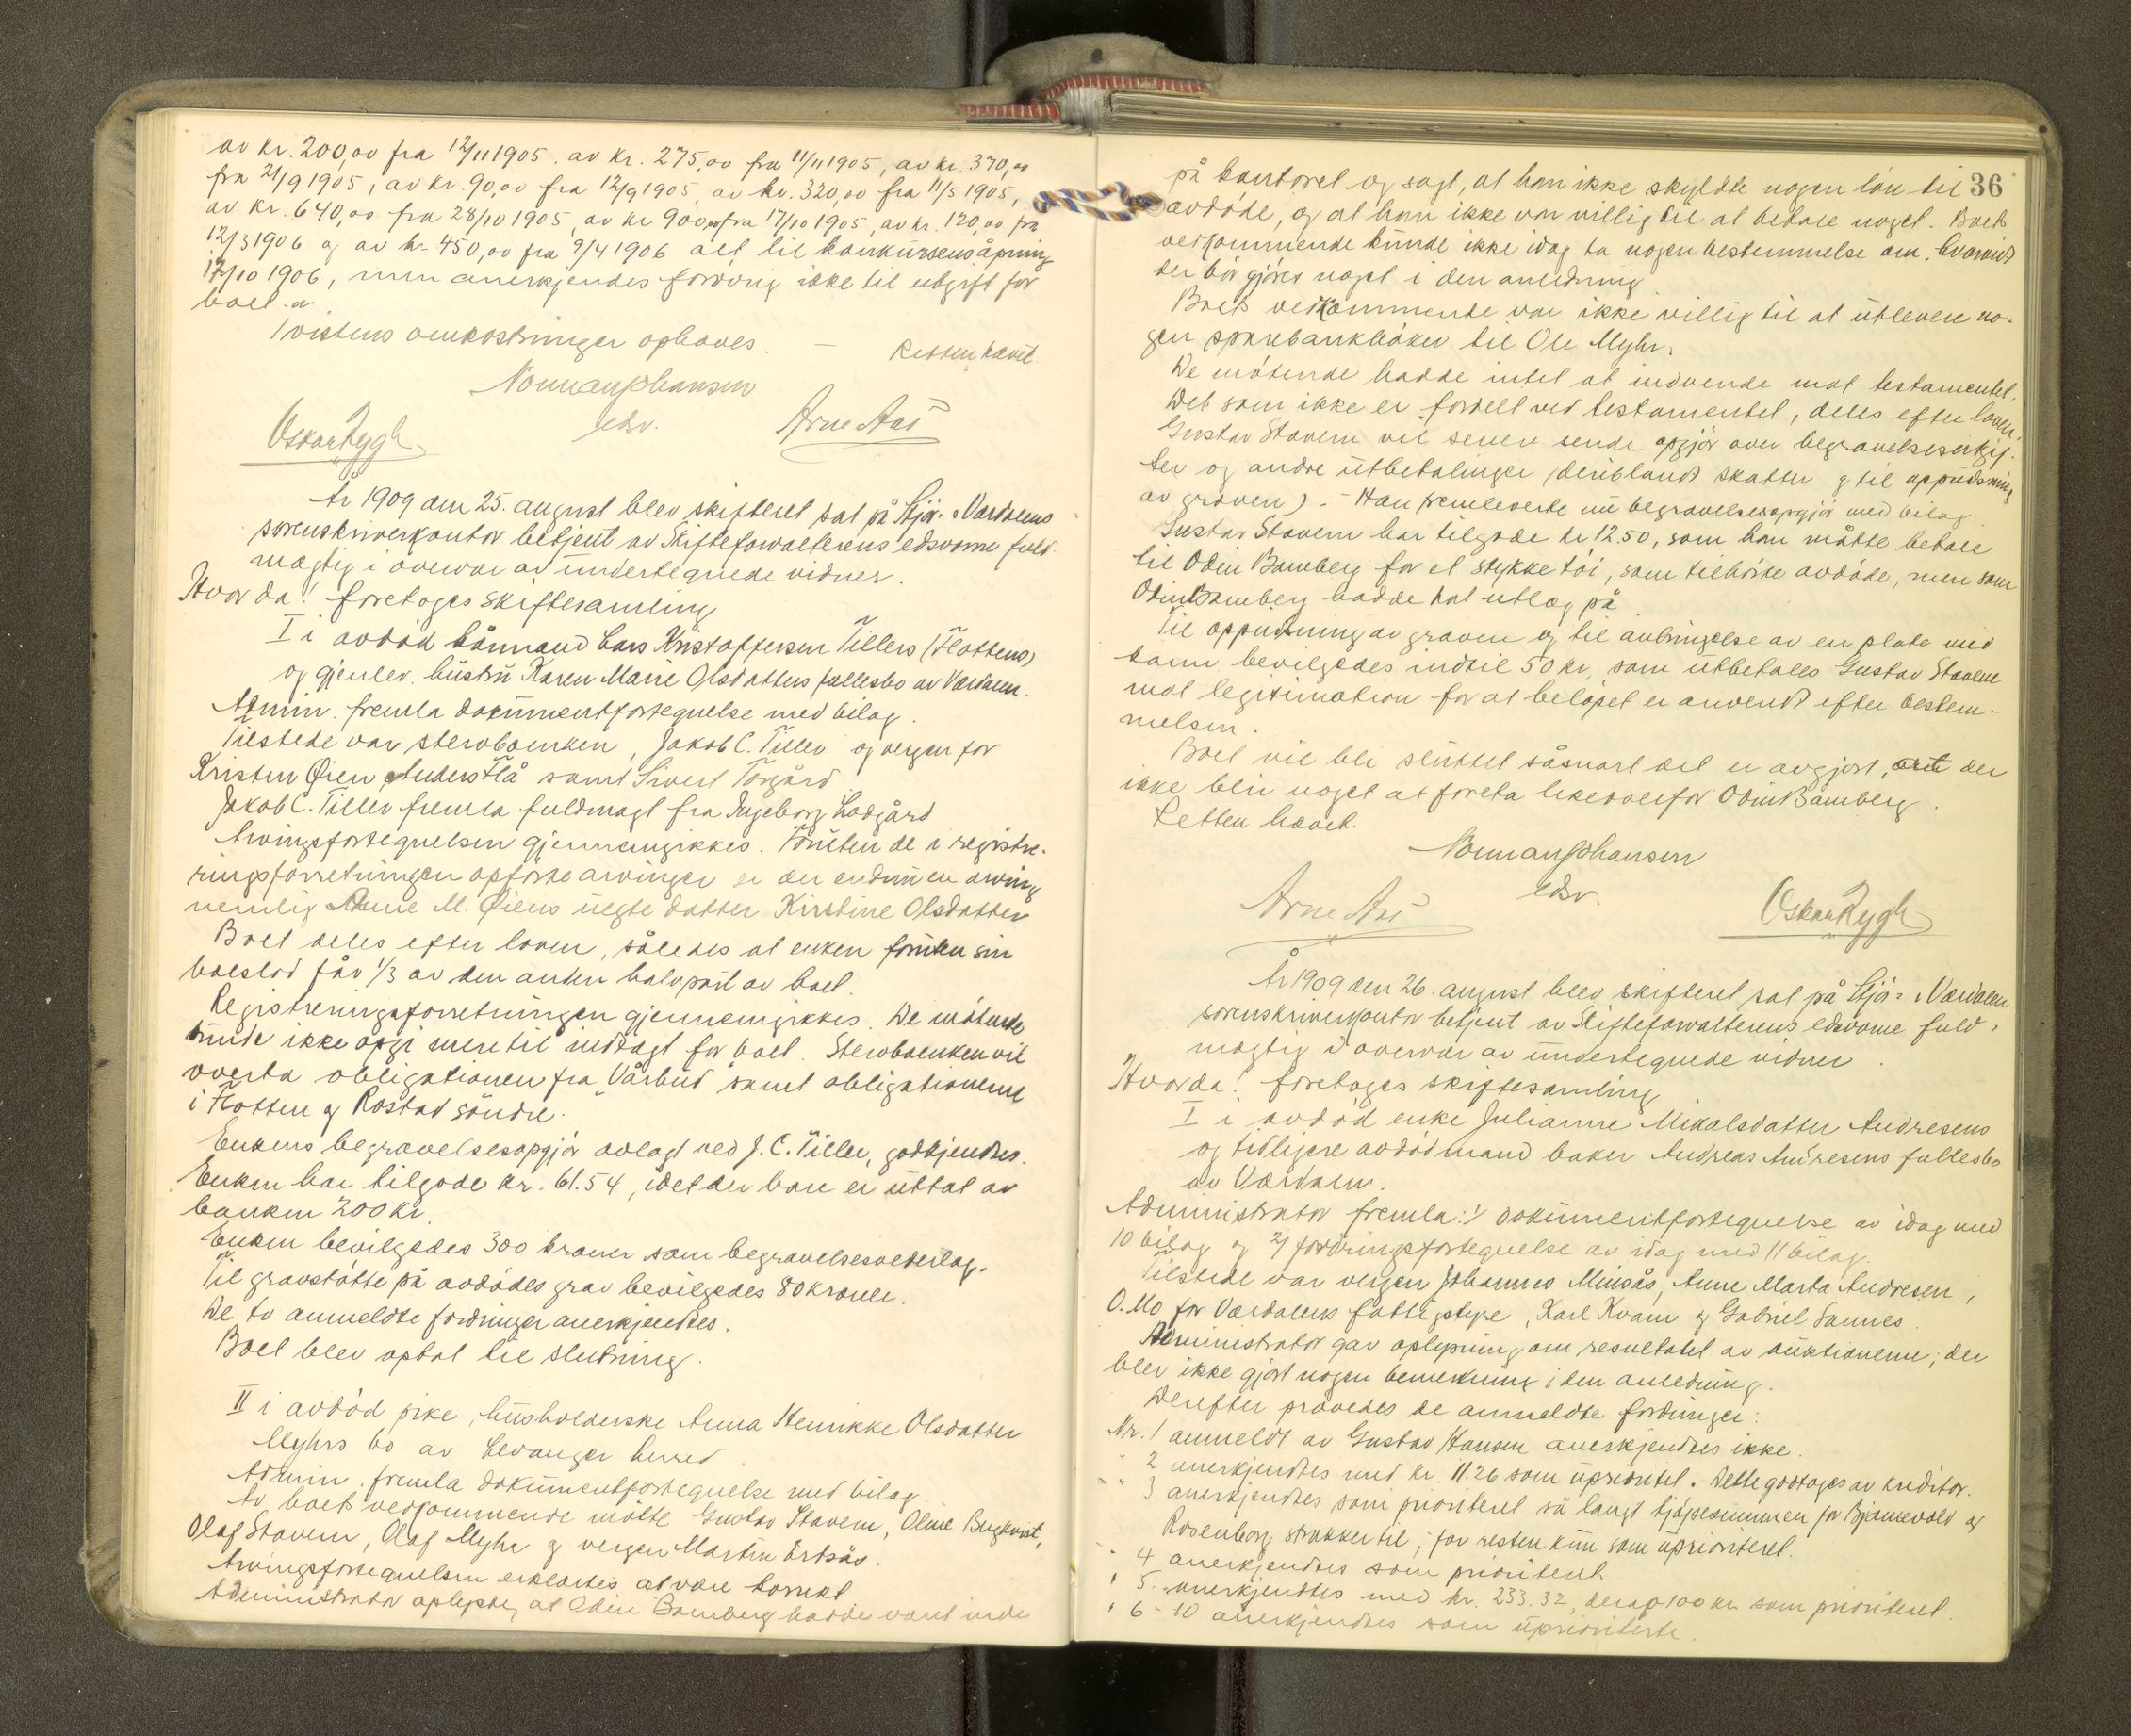 av kr. 200,00 fra 12/11 1905. av kr. 275,00 fra 11/11 1905, av kr. 370,00
fra 21/9 1905, av kr. 90,00 fra 12/9 1905, av kr. 320,00 fra 11/5 1905,
av kr. 640,00 fra 28/10 1905, av kr 900,00 fra 17/10 1905, av kr. 120,00 fra
12/3 1906 og av kr. 450,00 fra 9/4 1906 alt til konkursens åpning
12/10 1906, men anerkjendes forøvrig ikke til utgift for
boet."
Tvistens omkostninger ophæves. — Retten hævet
Norman Johansen
edsv.
Oskar Rygh Arne Aas
År 1909 den 25. august blev skifteret sat på Stjør- & Værdalens
sorenskriverkontor betjent av Skifteforvalterens edsvorne fuld-
mægtig i overvær av undertegnede vidner.
Hvorda! foretoges skiftesamling
I i avdød kårmand Lars Kristoffersen Tillers (Flottens)
og gjenlev. hustru Karen Marie Olsdatters fællesbo av Værdalen.
Admin. fremla dokumentfortegnelse med bilag.
Tilstede var stervboenken, Jakob C. Tiller og vergen for
Kristen Øien, Anders Flå samt Sivert Torgård
Jakob C. Tiller fremla fuldmagt fra Ingeborg Lodgård
Arvingsfortegnelsen gjennemgikkes. Foruten de i registre-
ringsforretningen opførte arvinger er der endnu en arving
nemlig Anne M. Øiens uegte datter Kirstine Olsdatter
Boet deles efter loven, således at enken foruten sin
boeslod får 1/3 av den anden halvpart av boet.
Registreringsforretningen gjennemgikkes. De møtende
kunde ikke opgi mere til indtægt for boet. Stervboenken vil
overta obligationen fra Vårbud samt obligationerne
i Flotten og Rostad søndre.
Enkens begravelsesopgjør avlagt ved J. C. Tiller, godkjendtes.
Enken har tilgode kr. 61.54, idet der bare er uttat av
banken 200 kr.
Enken bevilgedes 300 kroner som begravelsesvederlag.
Til gravstøtte på avdødes grav bevilgedes 80 kroner.
De to anmeldte fordringer anerkjendtes.
Boet blev optat til slutning.
II i avdød pike, husholderske Anna Henrikke Olsdatter
Myhrs bo av Levanger herred
Admin. fremla dokumentfortegnelse med bilag
Av boets vedkommende møtte Gustav Stavern, Oline Bergkvist,
Olaf Stavern, Olaf Myhr og vergen Martin Ertsås.
Arvingsfortegnelsen erklærtes at være korrekt
Administrator oplyste, at Odin Bamberg hadde været inde
36
på kontoret og sagt, at han ikke skyldte nogen lån til
avdøde, og at han ikke var villig til at betale noget. Boets
vedkommende kunde ikke idag ta nogen bestemmelse om, hvorvidt
der bør gjøres noget i den anledning
Boets vedkommende var ikke villig til at utlevere no-
gen sparebankbøker til Ole Myhr.
De møtende hadde intet at indvende mot testamentet.
Det som ikke er fordelt ved testamentet, deles efter loven.
Gustav Stavern vil senere sende opgjør over begravelsesutgif-
ter og andre utbetalinger (deriblandt skatter og til oppudsning
av graven). - Han fremleverte nu begravelsesopgjør med bilag
Gustav Stavern har tilgode kr 12.50, som han måtte betale
til Odin Bamberg for et stykke tøi, som tilhørte avdøde, men som
Odin Bamberg hadde hat utlæg på
Til oppudsning av graven og til anbringelse av en plate ved
samme bevilgedes indtil 50 kr, som utbetales Gustav Stavern
mot legitimation for at beløpet er anvendt efter bestem-
melsen.
Boet vil bli sluttet såsnart det er avgjort, at der
ikke blir noget at foreta likeoverfor Odin Bamberg.
Retten hævet.
Norman Johansen
edsv.
Arne Aas Oskar Rygh
År 1909 den 26. august blev skifteret sat på Stjør- & Værdalens
sorenskriverkontor betjent av Skifteforvalterens edsvorne fuld-
mægtig i overvær av undertegnede vidner.
Hvorda! foretoges skiftesamling
I i avdød enke Julianne Mikalsdatter Andresens
og tidligere avdød mand baker Andreas Andresens fællesbo
av Værdalen.
Administrator fremla: 1/ dokumentfortegnelse av idag med
10 bilag og 2/ fordringsfortegnelse av idag med 11 bilag.
Tilstede var vergen Johannes Minsås, Anne Marta Andresen,
O. Mo for Værdalens fattigstyre, Karl Kvam & Gabriel Sannes.
Administrator gav oplysning om resultatet av auktionerne; der
blev ikke gjort nogen bemerkning i den anledning.
Derefter prøvedes de anmeldte fordringer:
Nr. 1 anmeldt av Gustav Hansen anerkjendtes ikke.
" 2 anerkjendtes med kr. 11.26 som uprioritet. Dette godtoges av kreditor.
" 3 anerkjendtes som prioriteret så langt kjøpesummen for Bjarnevold og
Rosenborg strækker til, for resten kun som uprioriteret.
" 4 anerkjendtes som prioriteret
" 5. anerkjendtes med kr. 233.32, derav 100 kr som prioriteret.
" 6-10 anerkjendtes som uprioriterte.